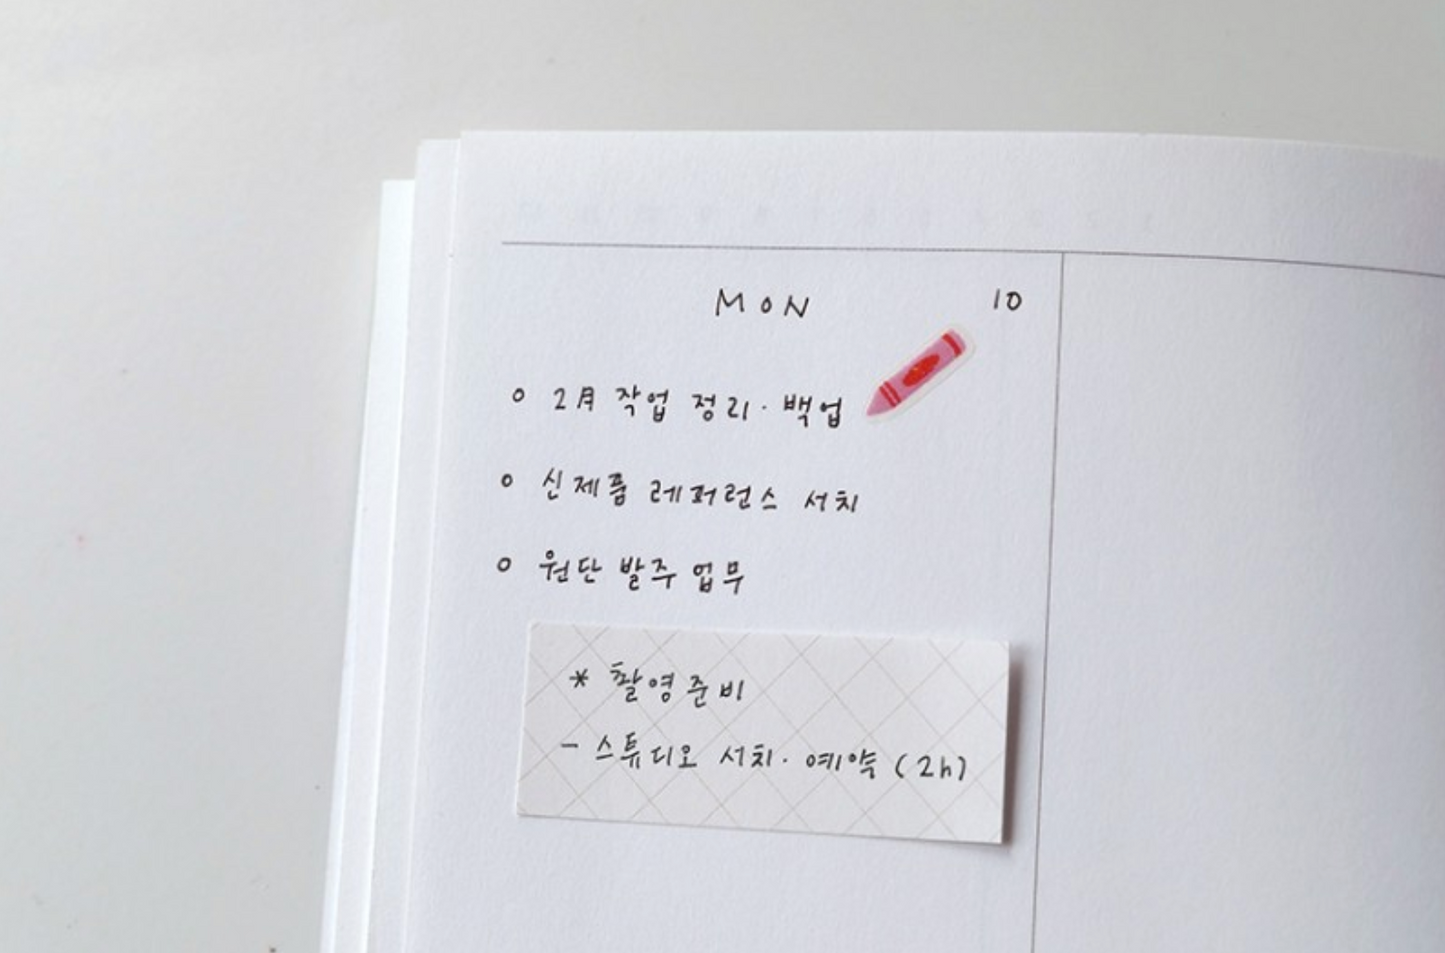 MON 10
○ 2月 작업 정리·백업
○ 신제품 레퍼런스 서치
○ 원단 발주 업무
* 촬영준비
- 스튜디오 서치·예약 (2h)